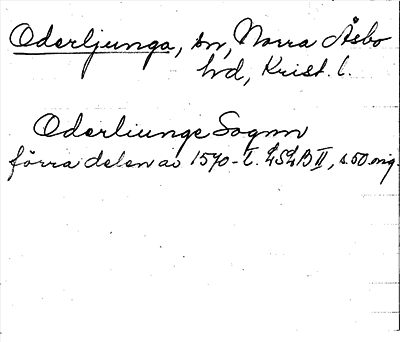 Oderljunga, sn, Norra Åsbo
hd, Krist. l.
Oderliunge Sognn
förra delen av 1570-t. LSLB II, s. 50 orig.